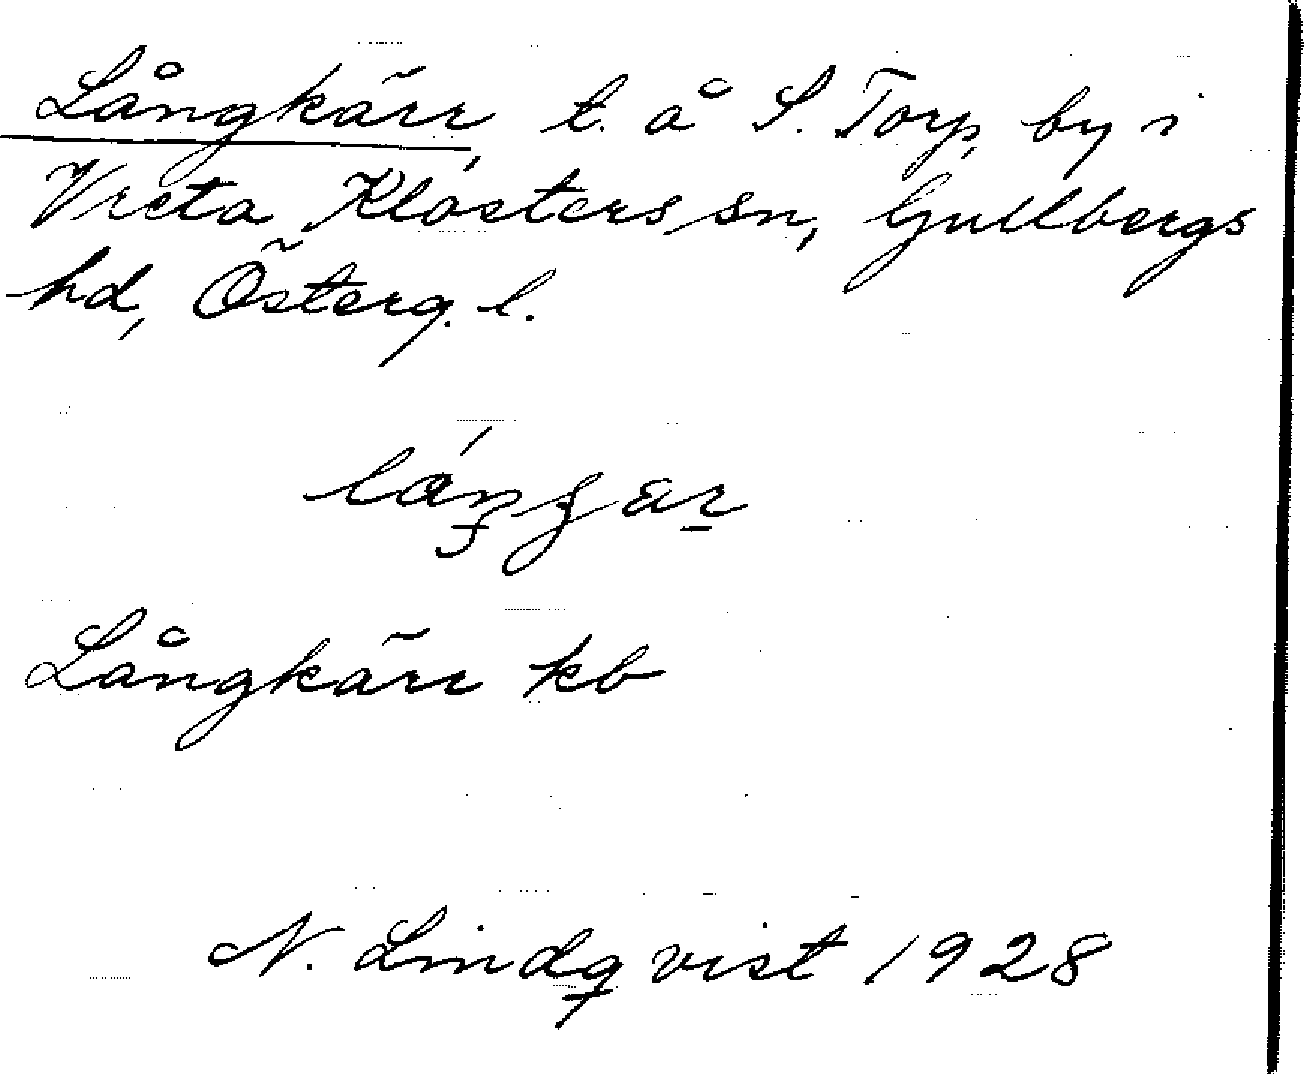 Långkärr, t. å S. Torp, by i
Vreta Klosters sn, Gullbergs
hd, Österg. l.
Långkärr kb
N. Lindqvist 1928